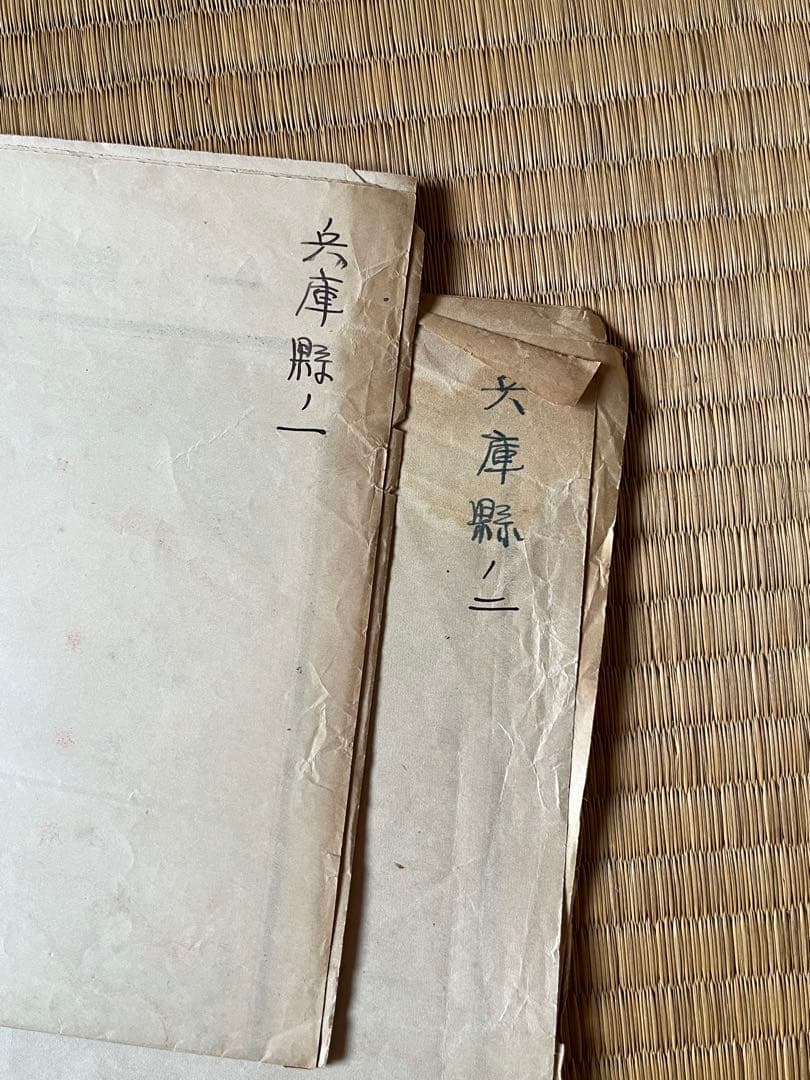 兵庫縣ノ一
兵庫縣ノ二